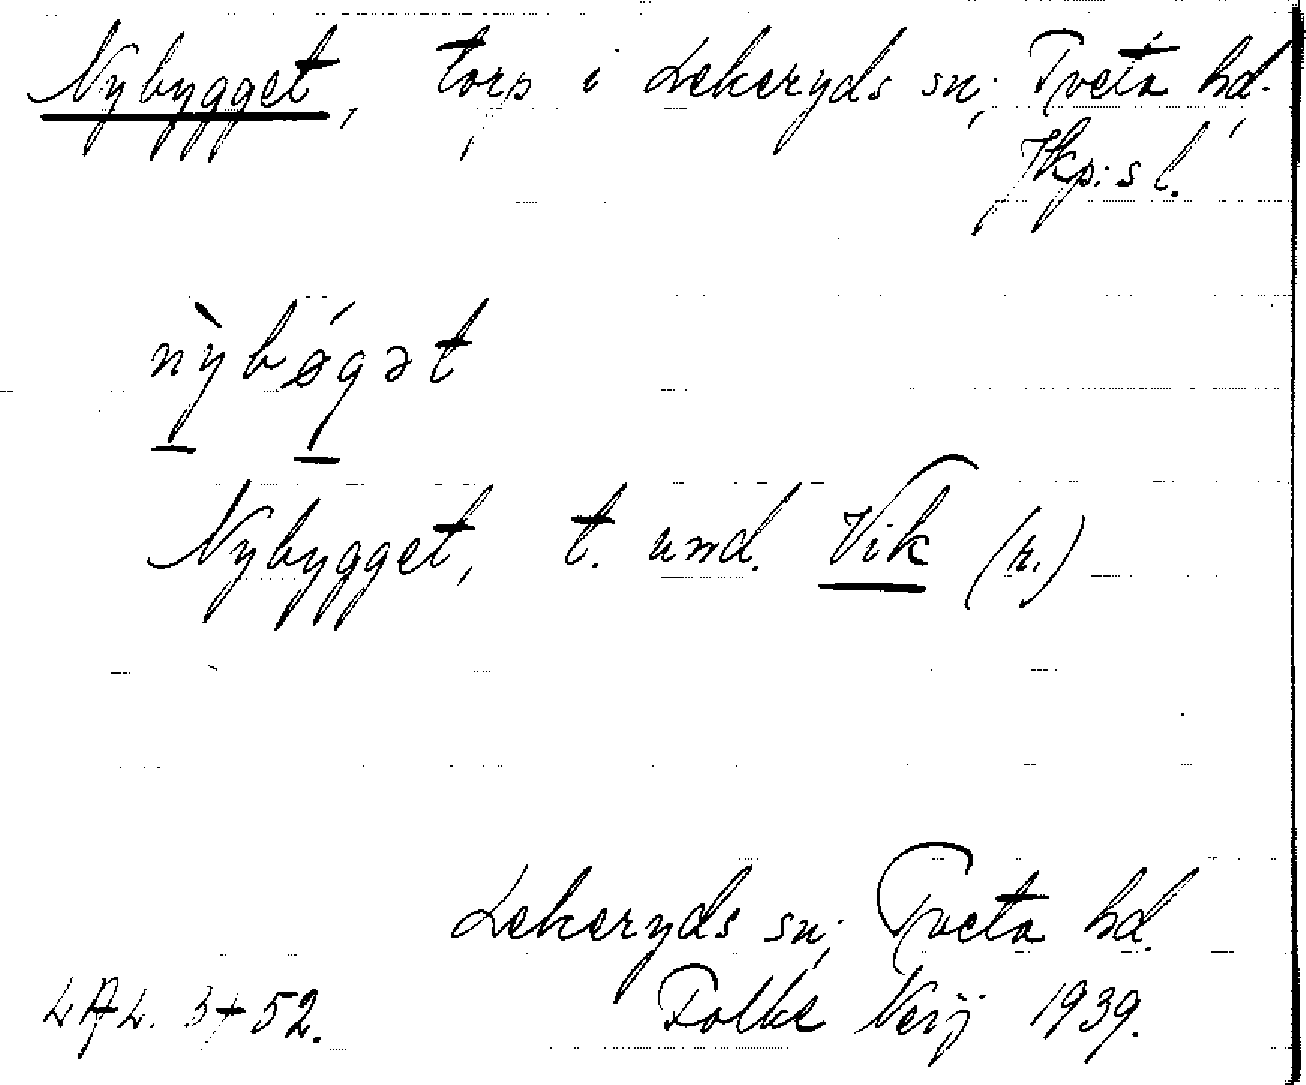 Nybygget, torp i Lekeryds sn, Tveta hd.
Jkp:s l.
nỳbǿgət
Nybygget, t. und. Vik (r.)
Lekeryds sn, Tveta hd.
LAL. 3452. Folke Neij 1939.